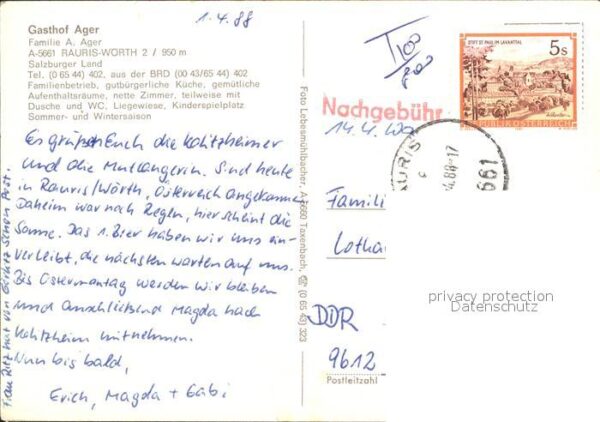 1.4.88
Gasthof Ager
Familie A. Ager
A-5661 RAURIS-WÖRTH 2 / 950 m
Salzburger Land
Tel. (0 65 44) 402, aus der BRD (00 43/65 44) 402
Familienbetrieb, gutbürgerliche Küche, gemütliche
Aufenthaltsräume, nette Zimmer, teilweise mit
Dusche und WC, Liegewiese, Kinderspielplatz
Sommer- und Wintersaison
Es grüßen Euch die Kahtzheimer
und die Mutlangerin. Sind heute
in Rauris/Wörth, Österreich angekommen
Daheim war noch Regen, hier scheint die
Sonne. Das 1. Bier haben wir uns ein-
verleibt, die nächsten warten auf uns.
Bis Ostermontag werden wir bleiben
und anschließend Magda nach
Kahtzheim mitnehmen.
Nun bis bald,
Erich, Magda + Gabi
Frau Ritz hat von Görlitz schon Post.
Foto Lebesmühlbacher, A-5660 Taxenbach, ☎ (0 65 43) 323
T 100
Nachgebühr
14.4.
STIFT ST. PAUL IM LAVANTTAL
5s
REPUBLIK ÖSTERREICH
RAURIS
4.88-17
661
Famili
Lotha
DDR
9612
Postleitzahl
privacy protection
Datenschutz